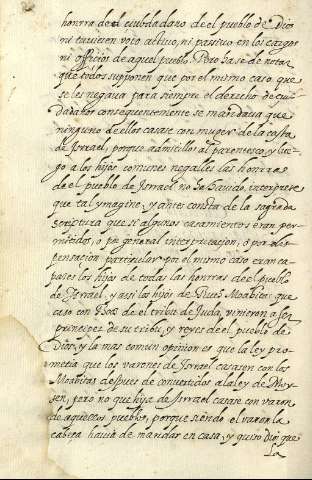 honrra de el ciudadano de el pueblo de Dios
ni tuviesen voto activo, ni passivo en los cargos
ni officios de aquel pueblo. Pero ha se de notar
que todos supponen que por el mismo caso que
se les negava para siempre el derecho de ciu
dadanos consequentemente se mandava que
ninguno de ellos casase con muger de la casta
de Isrrael, porque admitillos al parentesco, y lue
go a los hijos comunes negalles las honrras
de el pueblo de Isrrael no ha havido interprete
que tal ymagine, y antes consta de la sagrada
scriptura que si algunos casamientos eran per
mitidos, o por general interpretacion, o por dis
pensación particular por el mismo caso eran ca
pases los hijos de todas las honrras de el pueblo
de Isrrael, y assi los hijos de Ruth Moabita, que
caso con Booz de el tribu de Juda, vinieron a ser
principes de su tribu, y reyes de el pueblo de
Dios, y la mas comun opinion es que la ley pro
metia que los varones de Isrrael casasen con las
Moabitas despues de convertidas a la ley de Moy
sen, pero no que hija de Isrrael casase con varon
de aquellos pueblos, porque siendo el varon la
cabeza havia de mandar en casa, y quiso Dios que
la